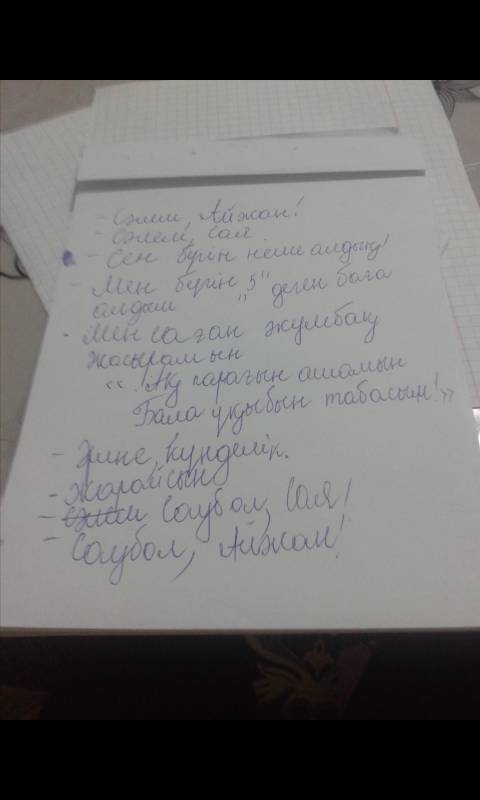 - Сәлем, Айжан!
- Сәлем, Сая
- Сен бүгін неше алдың?
- Мен бүгін "5" деген баға
алдым
- Мен саған жұмбақ
жасырамын
« Ақ парағын ашамын
Бала ұқыбын табасың! »
- Әлне, күнделік.
- Жарайсың
- Сәлем Саубол, Сая!
- Саубол, Айжан!